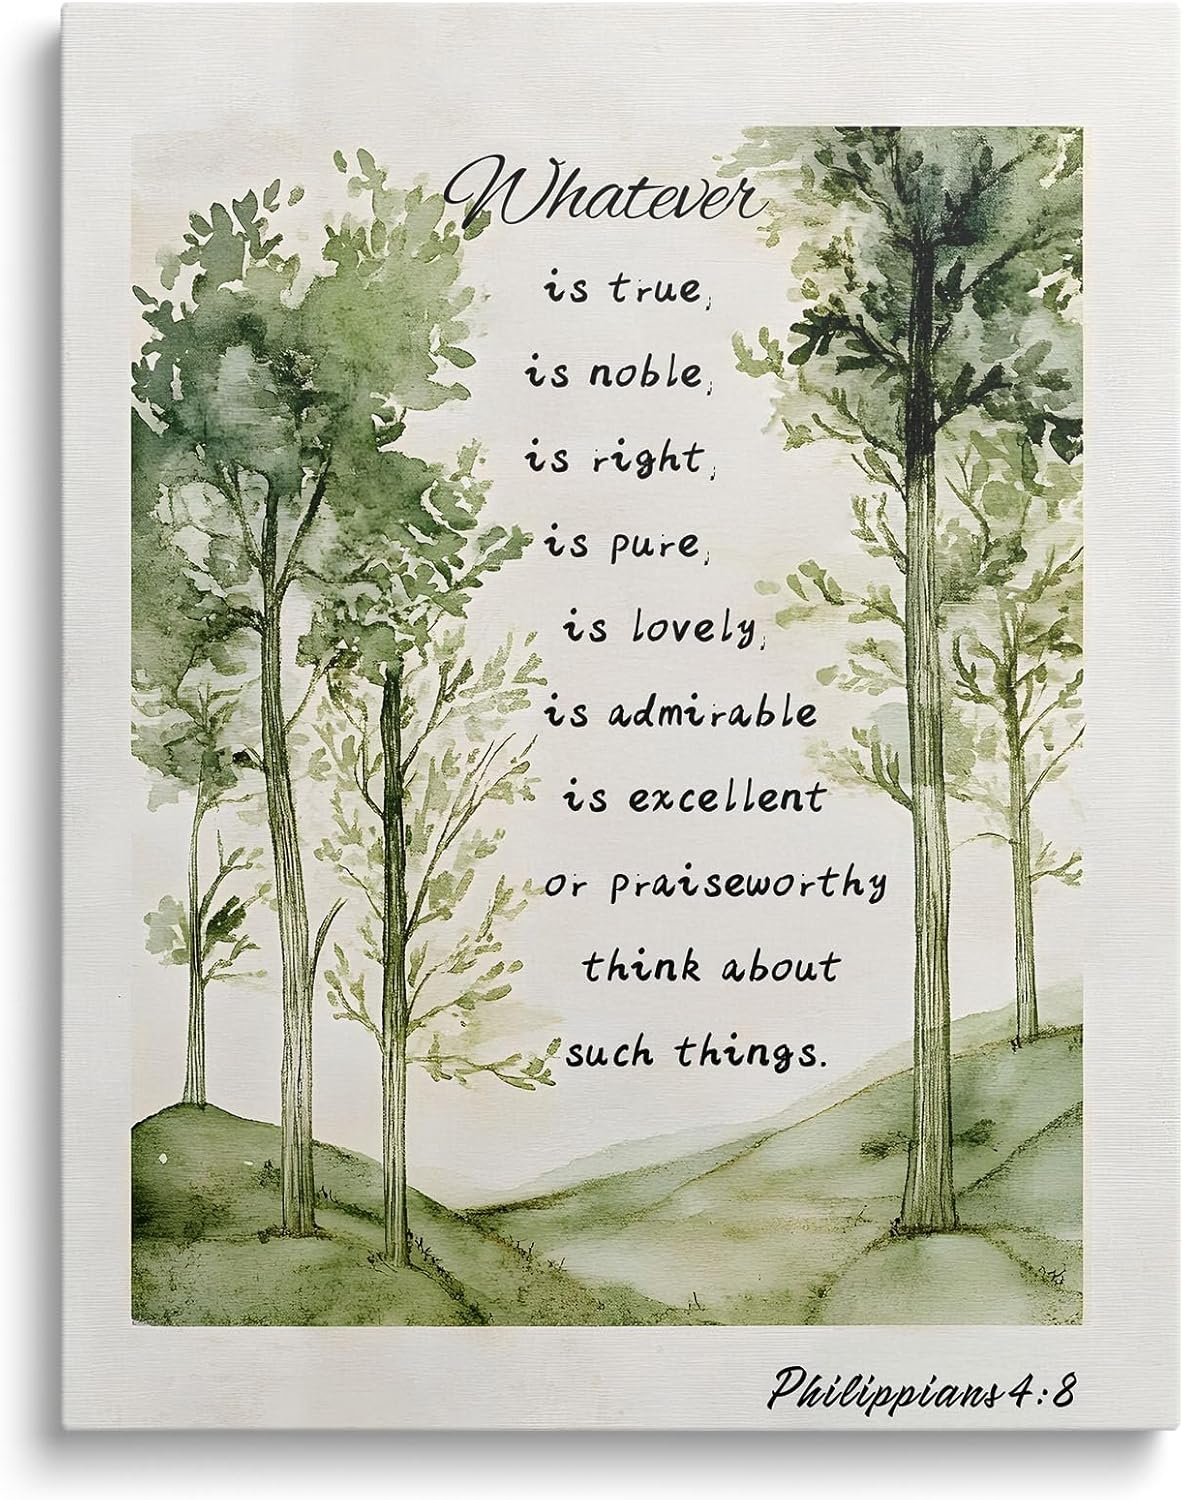 Whatever
is true,
is noble,
is right,
is pure,
is lovely,
is admirable
is excellent
or praiseworthy
think about
such things.
Philippians 4:8